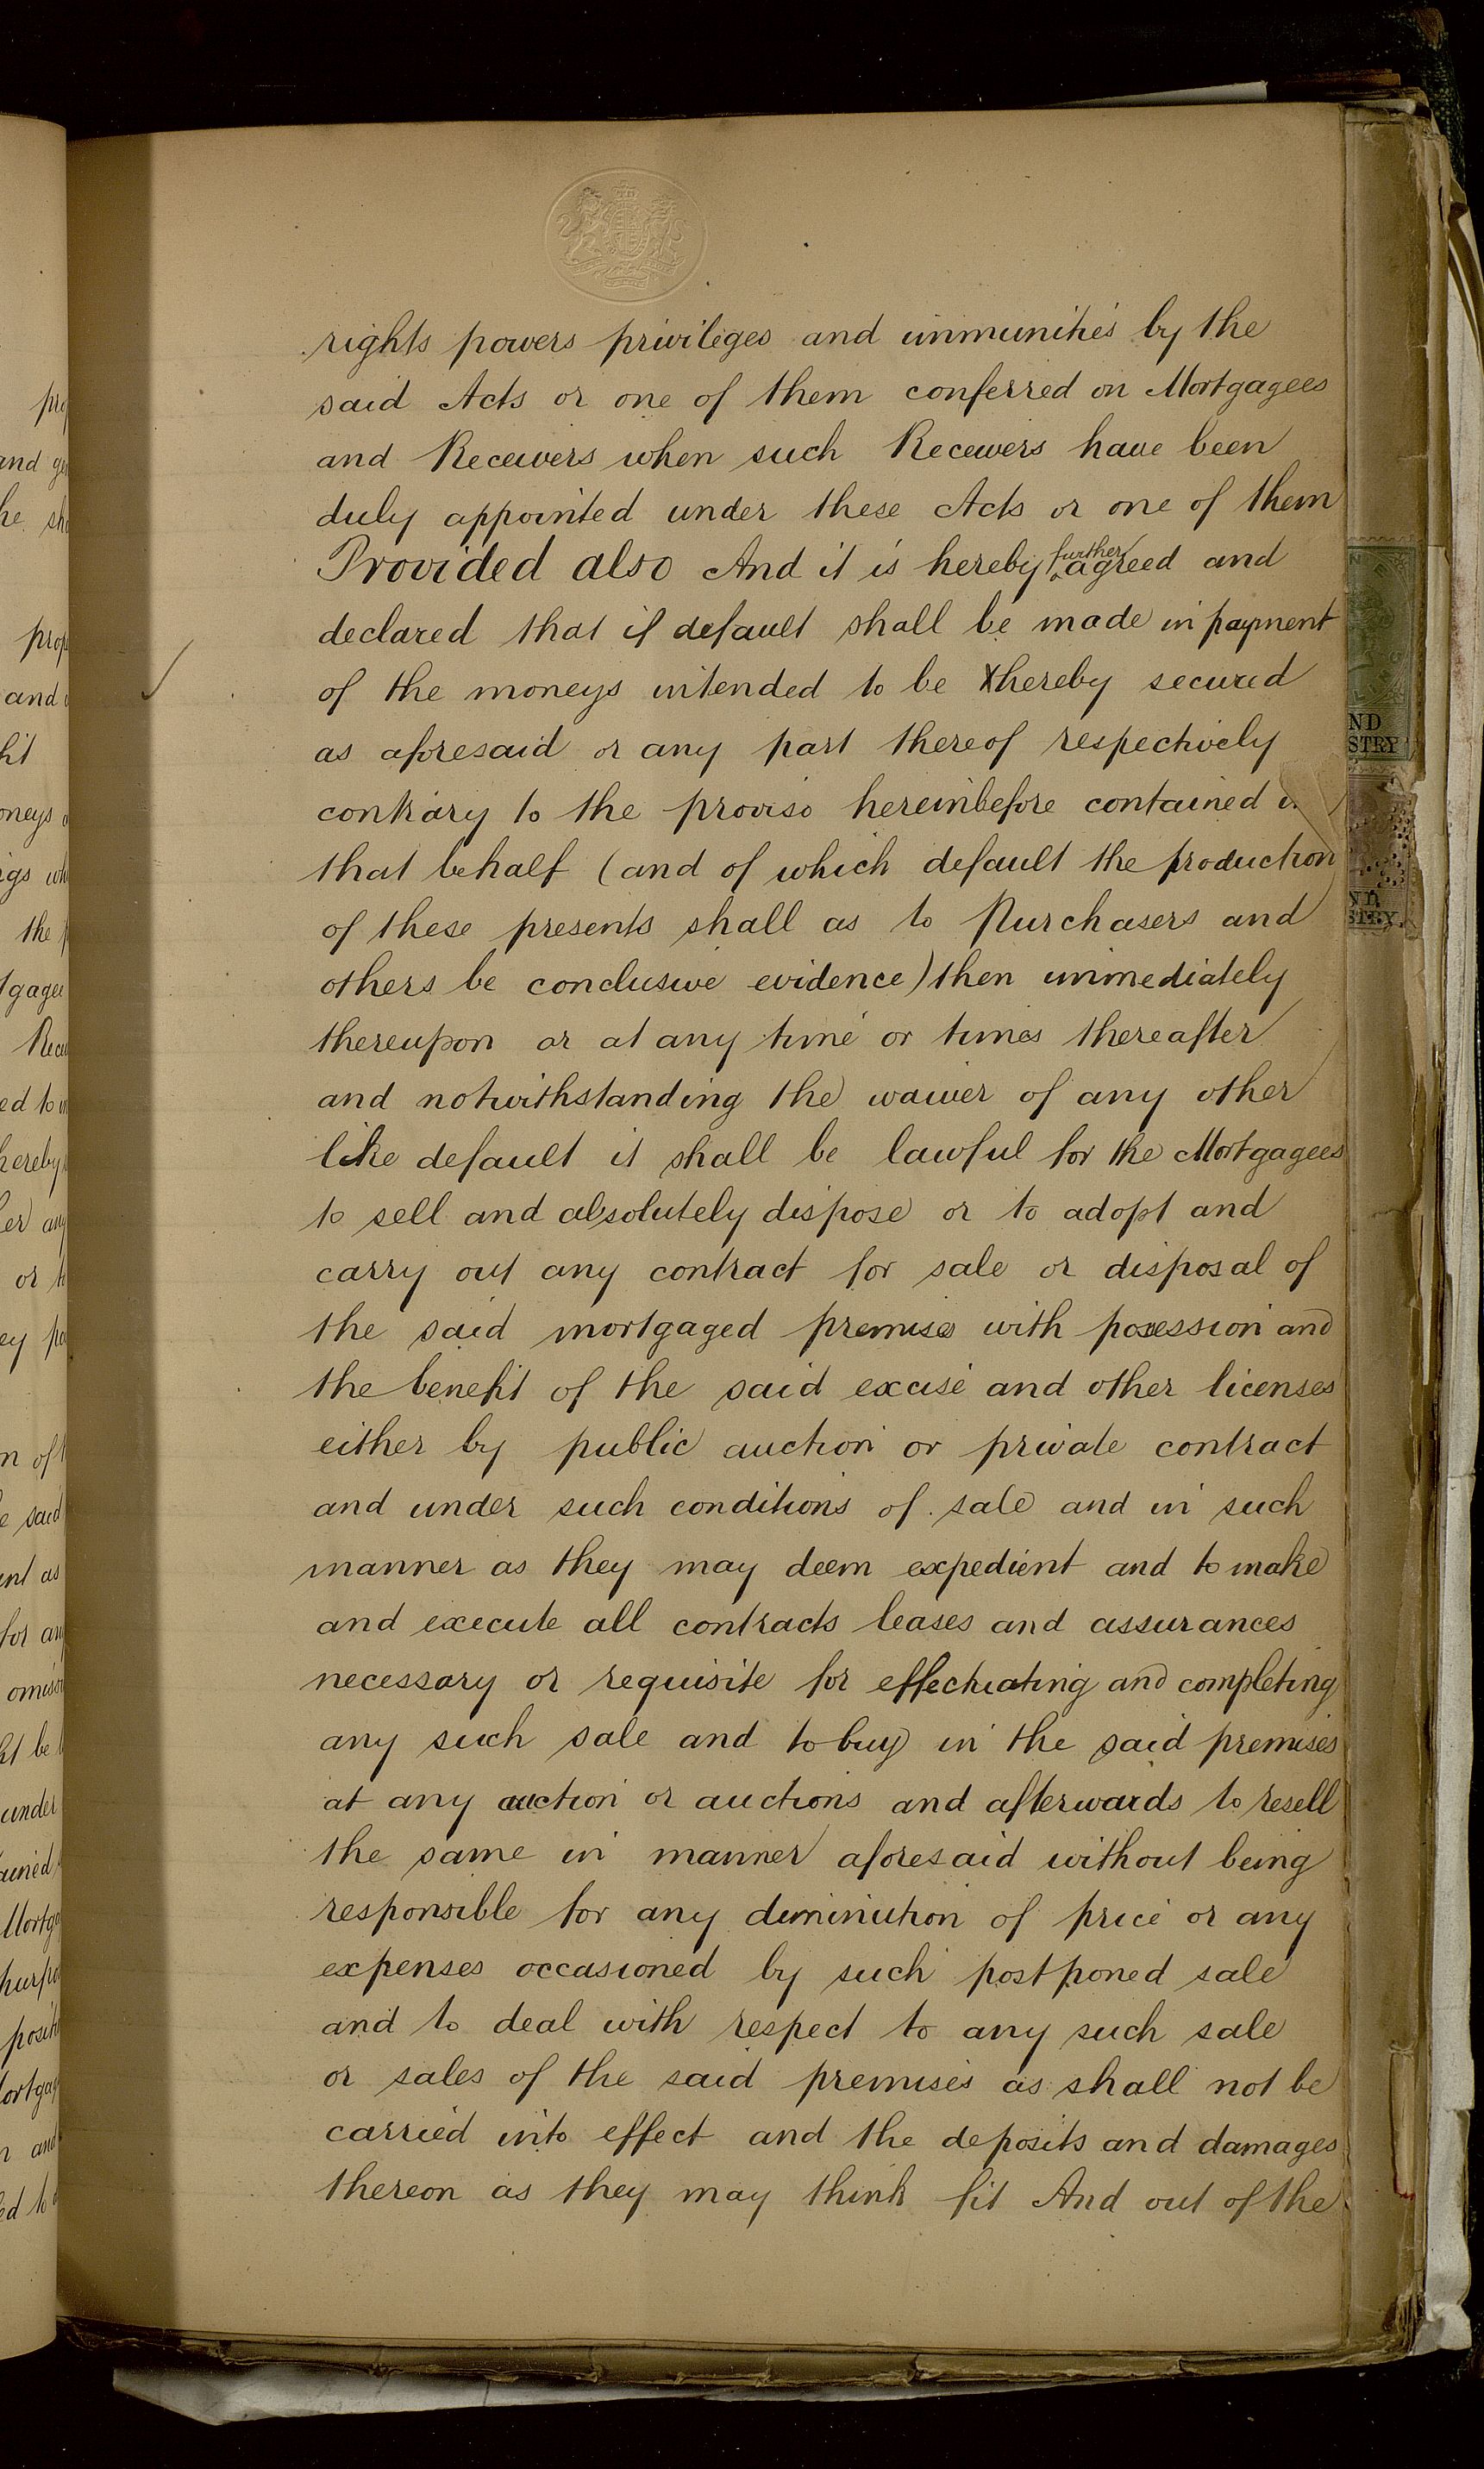 rights powers privileges and immunities by the
said Acts or one of them conferred on Mortgagees
and Receivers when such Receivers have been
duly appointed under these Acts or one of them
Provided also And it is hereby further agreed and
declared that if default shall be made in payment
of the moneys intended to be hereby secured
as aforesaid or any part thereof respectively
contrary to the proviso hereinbefore contained
that behalf (and of which default the production
of these presents shall as to Purchasers and
others be conclusive evidence) then immediately
thereupon or at any time or times thereafter
and notwithstanding the waiver of any other
like default it shall be lawful for the Mortgagees
to sell and absolutely dispose or to adopt and
carry out any contract for sale or disposal of
the said mortgaged premises with possession and
the benefit of the said excise and other licenses
either by public auction or private contract
and under such conditions of sale and in such
manner as they may deem expedient and to make
and execute all contracts leases and assurances
necessary or requisite for effectuating and completing
any such sale and to buy in the said premises
at any auction or auctions and afterwards to resell
the same in manner aforesaid without being
responsible for any diminution of price or any
expenses occasioned by such postponed sale
and to deal with respect to any such sale
or sales of the said premises as shall not be
carried into effect and the deposits and damages
thereon as they may think fit And out of the